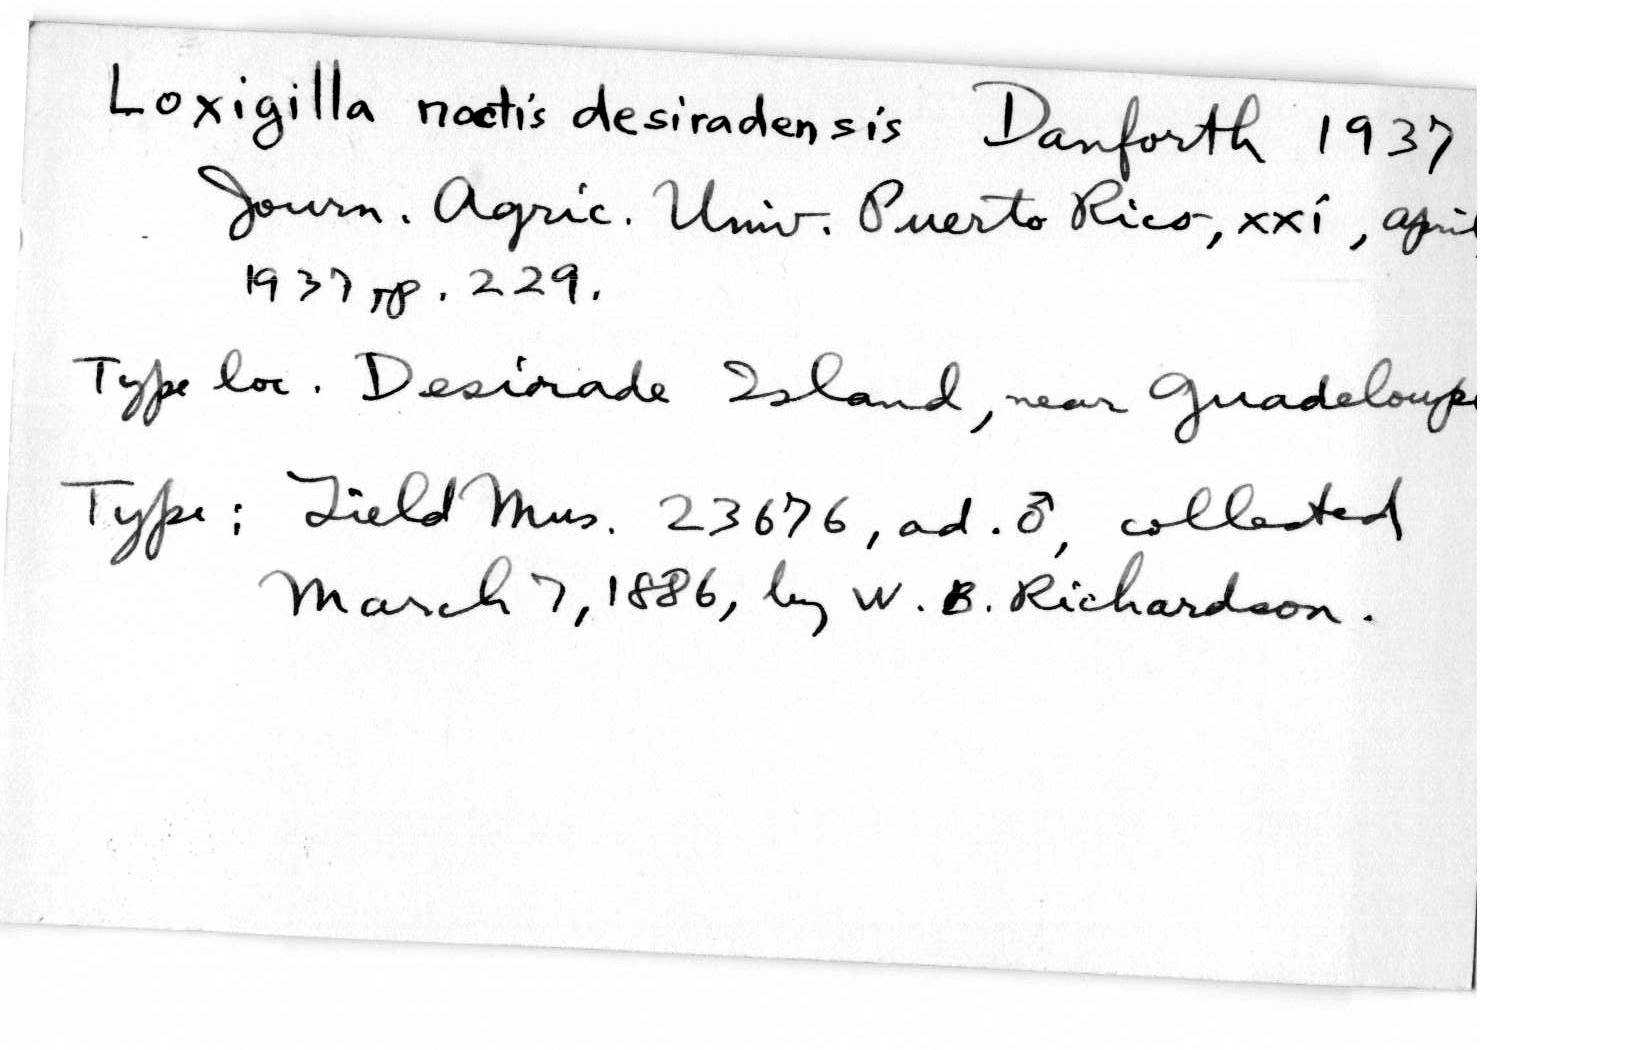 Loxigilla noctis desiradensis Danforth 1937
Journ. Agric. Univ. Puerto Rico, xxi, april
1937 pp. 229.
Type loc. Desirade Island, near Guadeloupe
Type: Field Mus. 23676, ad. ♂, collected
March 7, 1886, by W. B. Richardson.